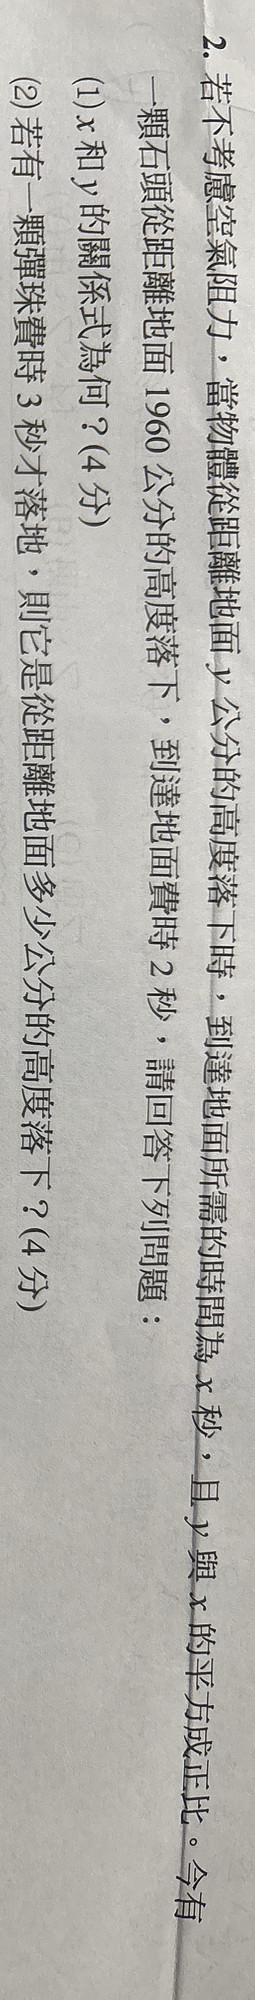 2. 若不考慮空氣阻力，當物體從距離地面 y 公分的高度落下時，到達地面所需的時間為 x 秒，且 y 與 x 的平方成正比。今有
一顆石頭從距離地面 1960 公分的高度落下，到達地面費時 2 秒，請回答下列問題：
(1) x 和 y 的關係式為何？(4 分)
(2) 若有一顆彈珠費時 3 秒才落地，則它是從距離地面多少公分的高度落下？(4 分)